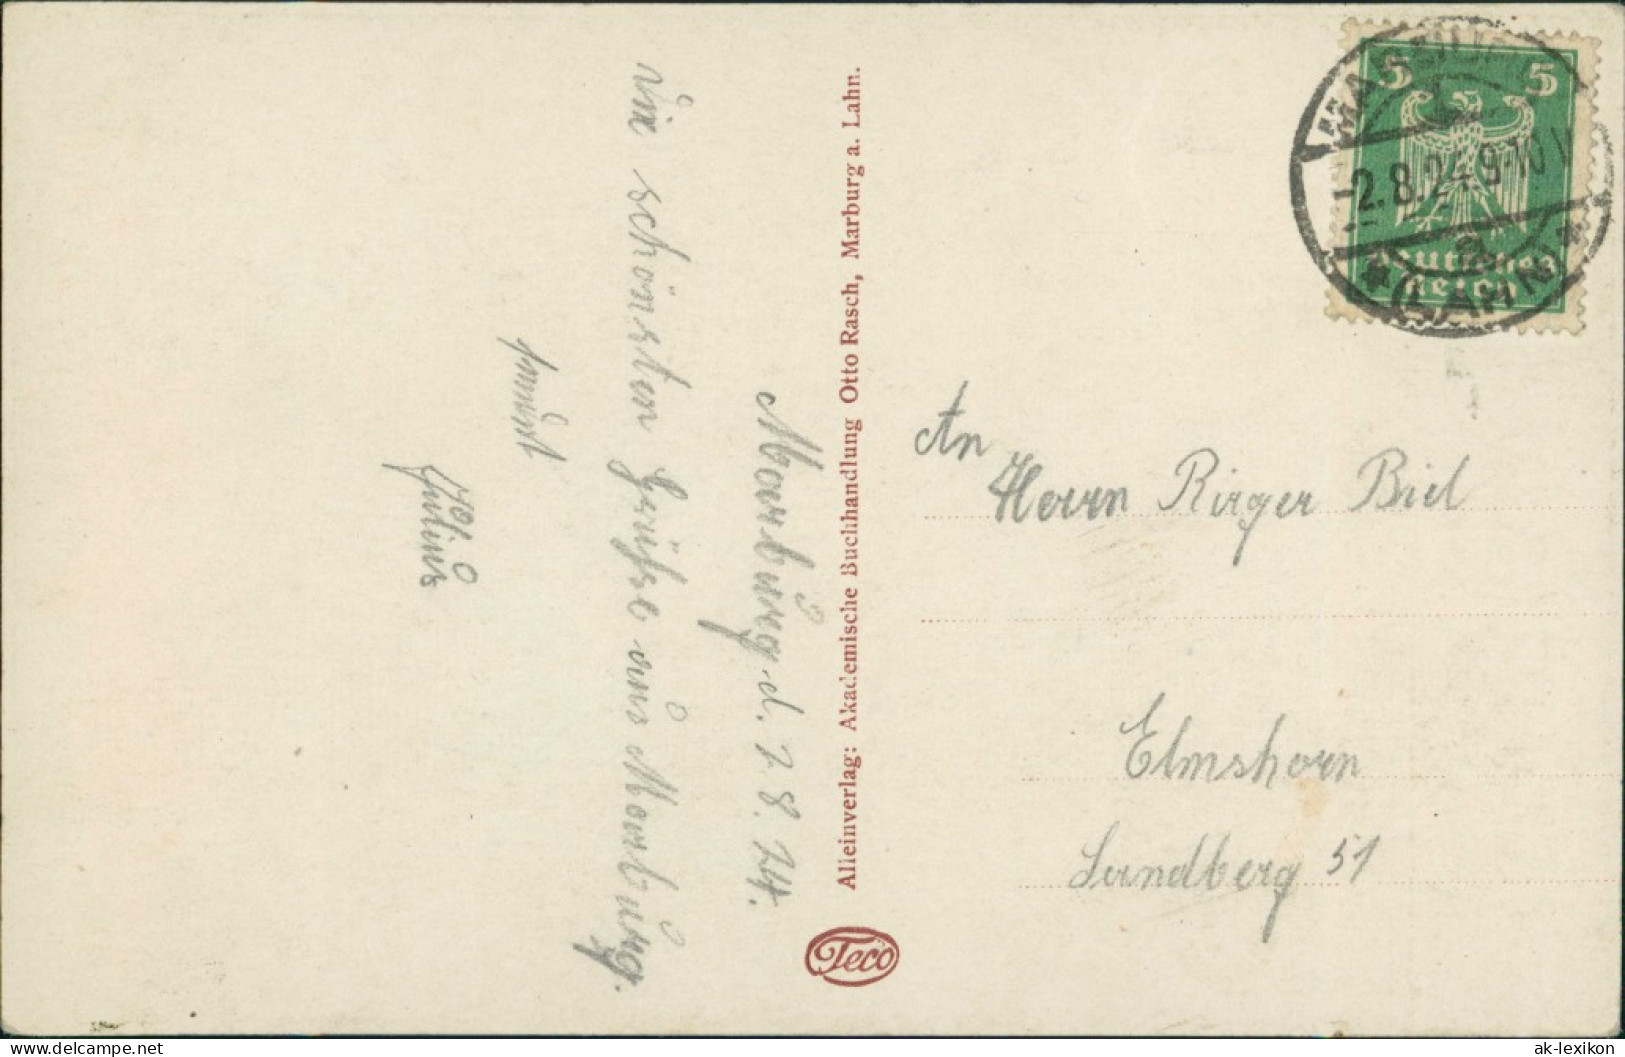 Marburg d. 2 8. 24.
Die schönsten Grüße aus Marburg.
sendet
Julius
Alleinverlag: Akademische Buchhandlung Otto Rasch, Marburg a. Lahn.
Teco
MARBURG
-2.8.24.9-10 V
* (LAHN) *
5 5
Deutsches
Reich
An
Herrn Rirger Biel
Elmshorn
Sandberg 51
© akpool.de